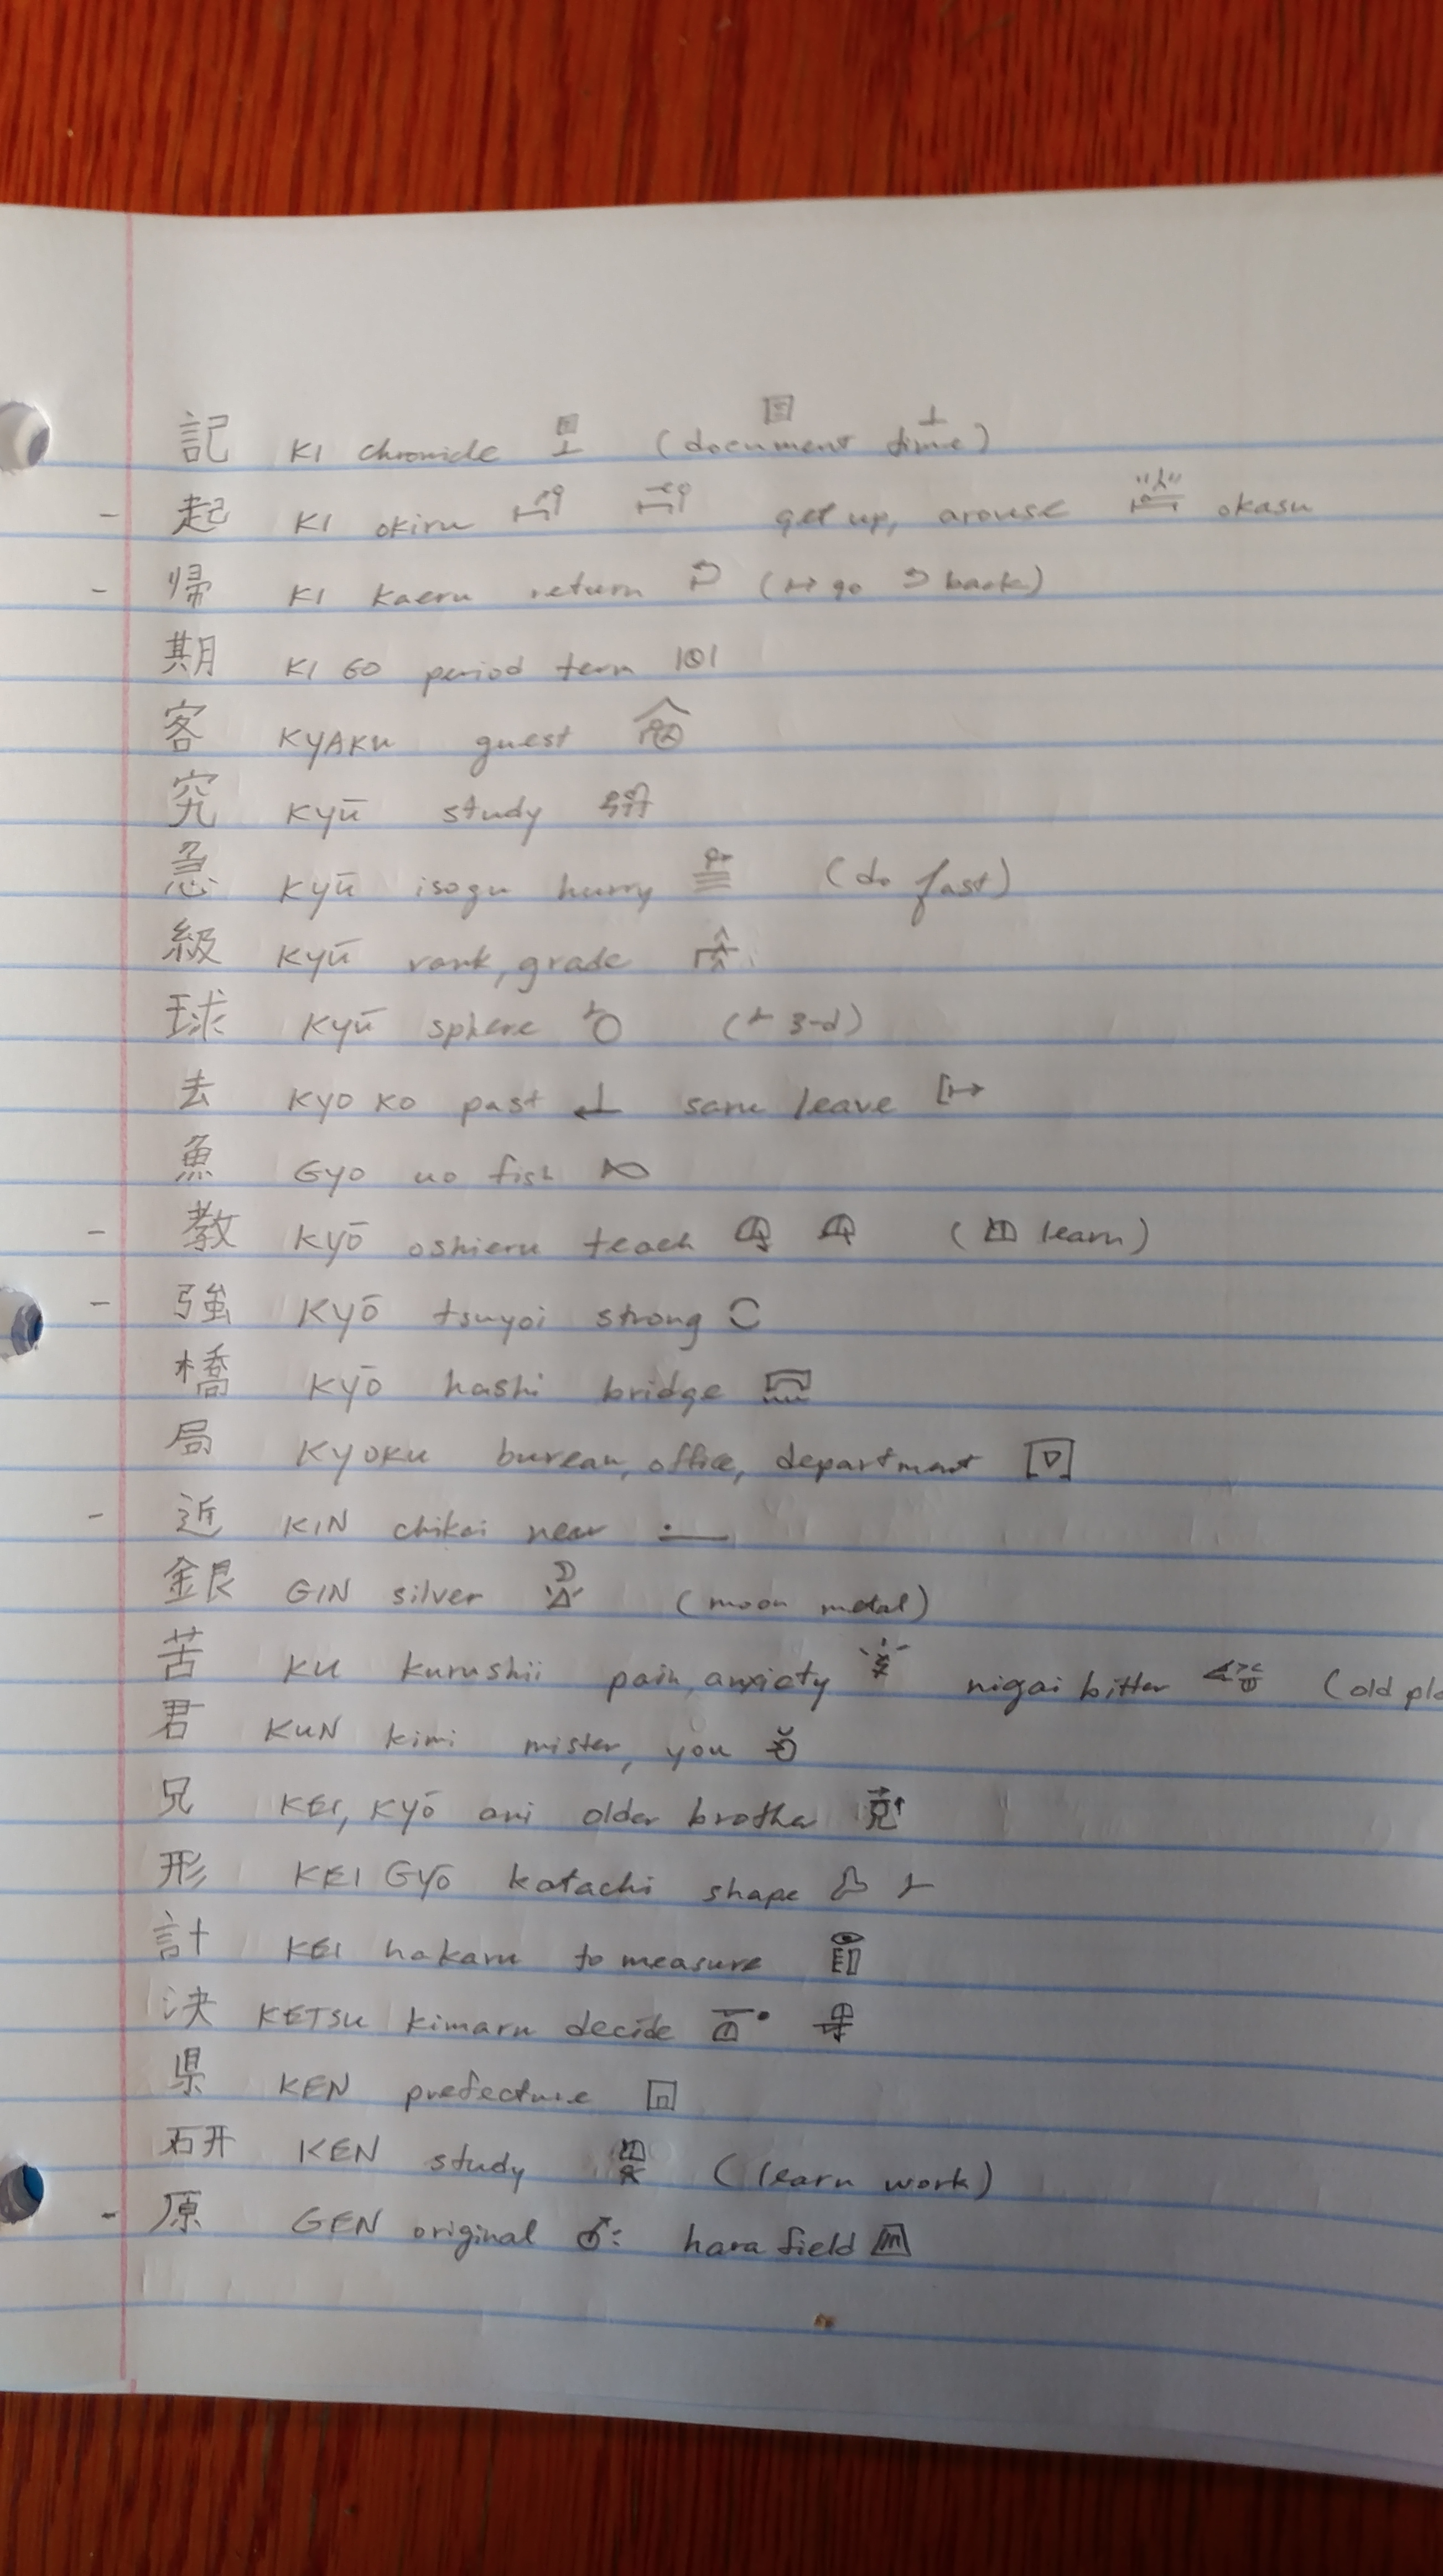 記 KI chronicle (document time)
- 起 KI okiru get up, arouse okasu
- 帰 KI kaeru return (↦ go ⊃ back)
期 KI GO period term
客 KYAKU guest
究 KYŪ study
急 KYŪ isogu hurry (do fast)
級 KYŪ rank, grade
球 KYŪ sphere (3-d)
去 KYO KO past saru leave
魚 GYO uo fish
- 教 KYŌ oshieru teach (learn)
- 強 KYŌ tsuyoi strong
橋 KYŌ hashi bridge
局 KYOKU bureau, office, department
- 近 KIN chikai near
銀 GIN silver (moon metal)
苦 KU kurushii pain, anxiety nigai bitter (old
君 KUN kimi mister, you
兄 KEI, KYŌ ani older brother
形 KEI GYŌ katachi shape
計 KEI hakaru to measure
決 KETSU kimaru decide
県 KEN prefecture
研 KEN study (learn work)
- 原 GEN original hara field